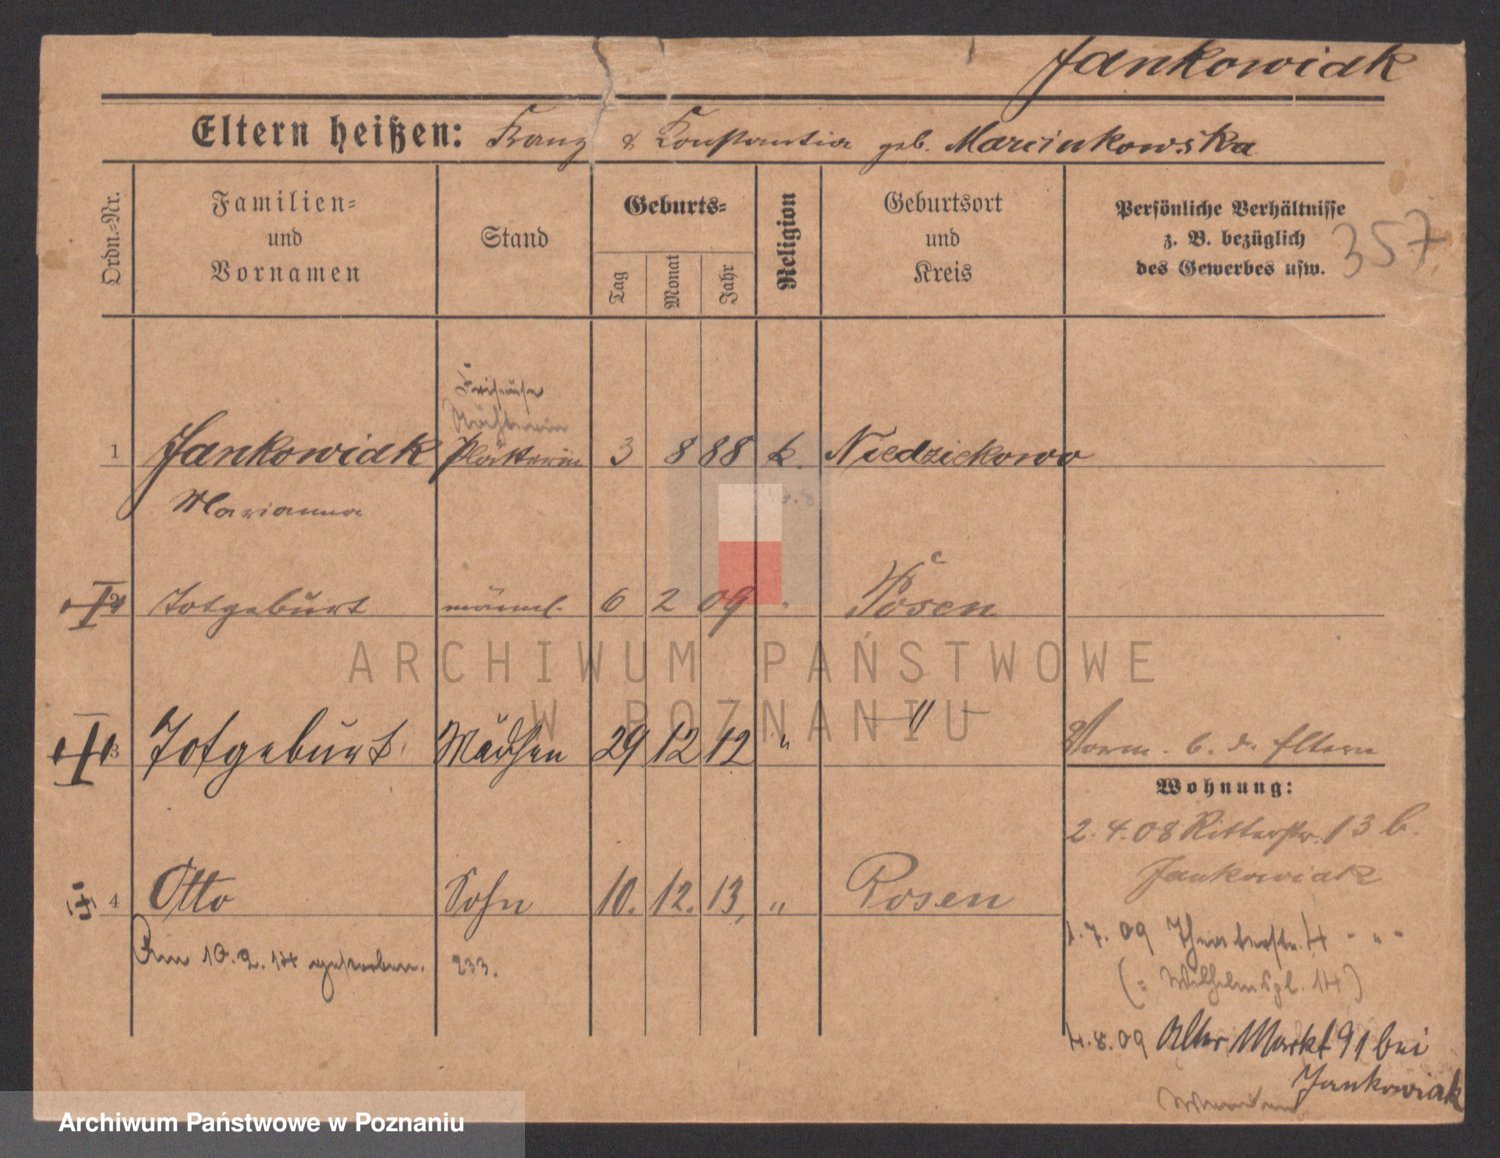 Jankowiak
Eltern heißen: Franz & Konstantia geb. Marcinkowska
Ordn.-Nr.
Familien-
und
Vornamen
Stand
Geburts-
Tag
Monat
Jahr
Religion
Geburtsort
und
Kreis
Persönliche Verhältnisse
z. B. bezüglich
des Gewerbes usw.
357
Friseuse
Näherin
1 Jankowiak Plätterin 3 8 88 k. Niedzickowo
Marianna
2 Totgeburt männl. 6 2 09 " Posen
ARCHIWUM PAŃSTWOWE
W POZNANIU
3 Totgeburt Mädchen 29 12 12 " "
Vorm. b. d. Eltern
Wohnung:
2.4.08 Ritterstr. 13 b.
Jankowiak
4 Otto Sohn 10. 12. 13, " Posen
1.7.09 Theaterstr. 4 - " -
Am 10.2.14 gestorben. 233.
(= Wilhelmspl. 14)
4.8.09 Alter Markt 91 bei
Jankowiak
Archiwum Państwowe w Poznaniu